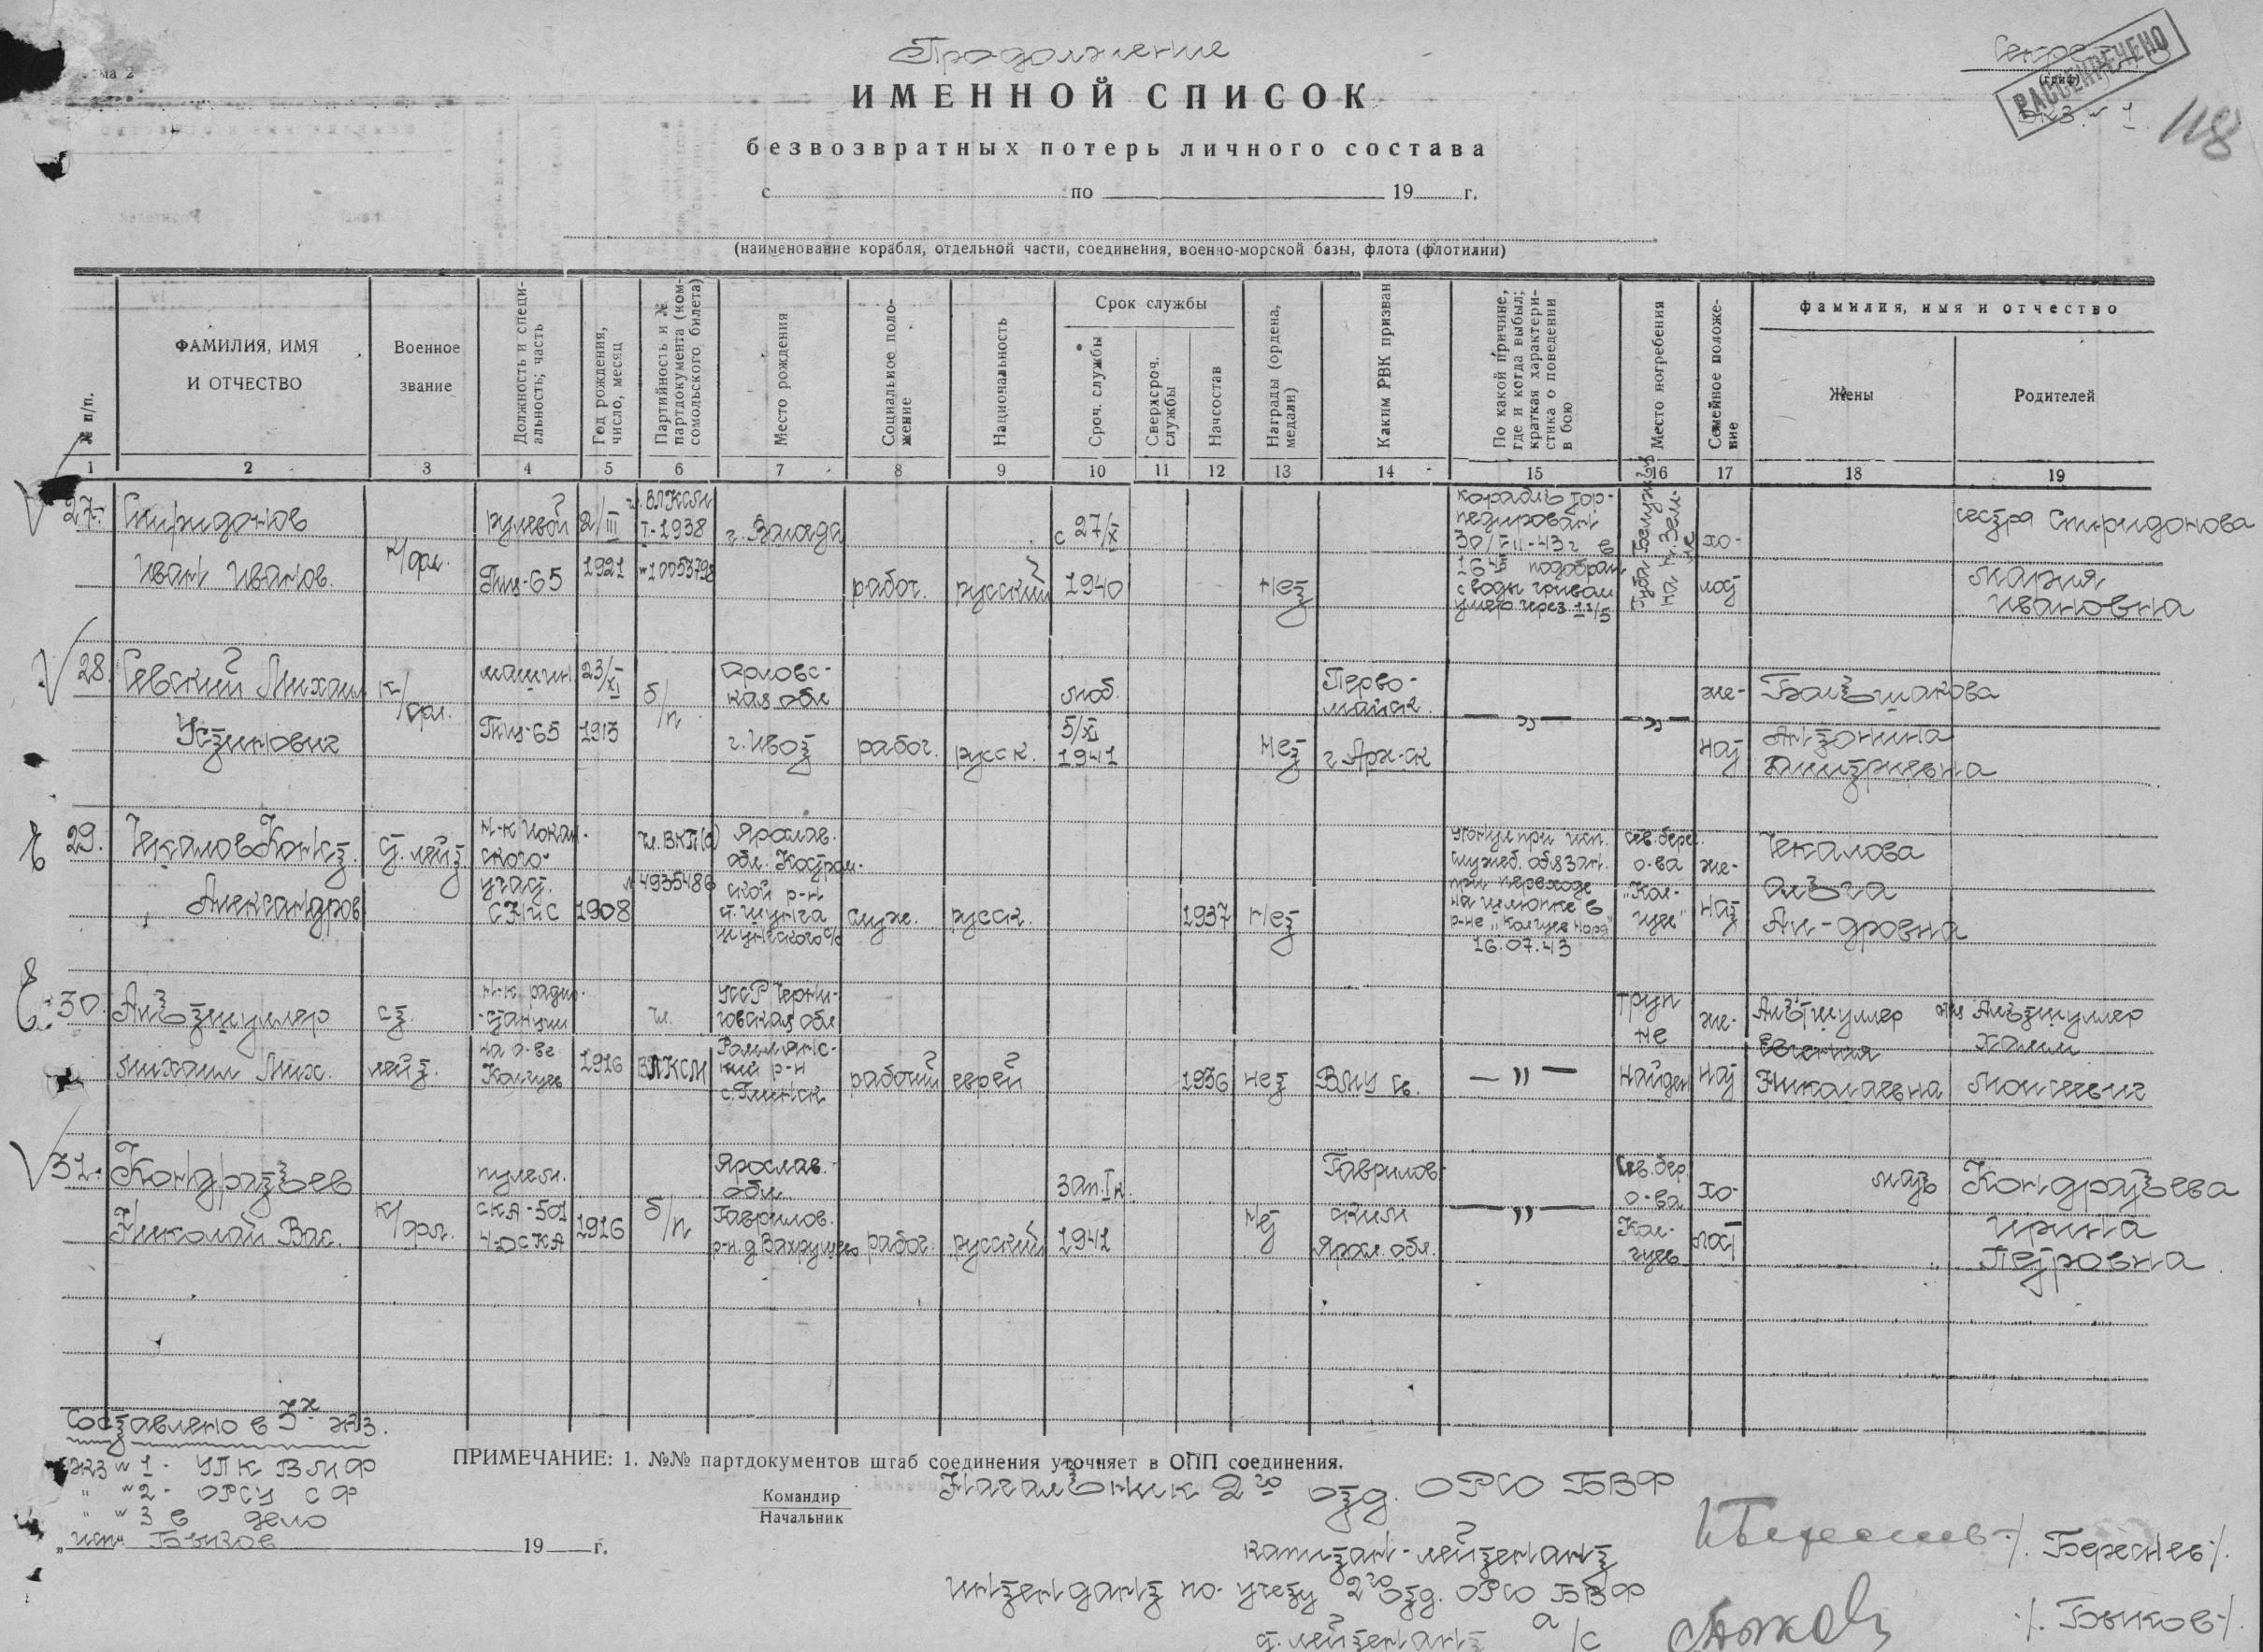 Продолжение
ИМЕННОЙ СПИСОК
безвозвратных потерь личного состава
с по 19 г.
(наименование корабля, отдельной части, соединения, военно-морской базы, флота (флотилии)
(гриф)
РАССЕКРЕЧЕНО
экз. № 1
118
№ п/п.
ФАМИЛИЯ, ИМЯ
И ОТЧЕСТВО
Военное
звание
Должность и специ-
альность; часть
Год рождения,
число, месяц
Партийность и №
партдокумента (ком-
сомольского билета)
Место рождения
Социальное поло-
жение
Национальность
Срок службы
Сроч. службы
Сверхсроч.
службы
Начсостав
Награды (ордена,
медали)
Каким РВК призван
По какой причине,
где и когда выбыл;
краткая характери-
стика о поведении
в бою
Место погребения
Семейное положе-
ние
фамилия, имя и отчество
Жены
Родителей
1 2 3 4 5 6 7 8 9 10 11 12 13 14 15 16 17 18 19
27.
Спиридонов
Иван Иванов.
к/фл.
рулевой
Тщ-65
2/III
1921
ч. ВЛКСМ
I-1938
№10053798
г. Вологда
рабоч.
русский
с 27/X
1940
нет
корабль тор-
педирован
30/VII-43 г в
16 45 подобран
с воды
умер через
Губа Белужья
на Н. Зем-
ле
хо-
лост
сестра Спиридонова
Мария
Ивановна
28.
Севский Михаил
Устинович
к/фл.
машин
Тщ-65
23/XI
1913
б/п
Орловс-
кая обл
г.
рабоч.
русск.
моб.
5/XI
1941
нет
Перво-
майск.
г Арх-ск
— „ —
— „ —
же-
нат
Большакова
Антонина
Дмитриевна
29.
Чекалов Конст.
Александров
ст. лейт.
н-к Иокан-
ского
участ.
СНиС
1908
чл. ВКП(б)
№ 4935486
Ярослав.
обл. Костром-
ской р-н
п. Шунга
Шунгского с/с
служ.
русск.
1937
нет
утонул при исп.
служеб. обязан.
при переходе
на шлюпке в
р-не „Колгуев Норд"
16.07.43
сев. берег
о-ва
„Кол-
гуев"
же-
нат
Чекалова
Ольга
Ал-дровна
30.
Альтшуллер
Михаил Мих.
ст.
лейт.
н-к радио-
станции
на о-ве
Колгуев
1916
чл.
ВЛКСМ
УССР Черни-
говская обл
Роменс-
кий р-н
с. Глинск
рабочий
еврей
1936
нет
ВМУ Св.
— „ —
труп
не
найден
же-
нат
Альтшуллер
Евгения
Николаевна
отец Альтшуллер
Хаим
Моисеевич
31.
Кондратьев
Николай Вас.
к/фл.
пулем.
СКА-501
4-ДСКА
1916
б/п
Ярослав.
обл.
Гаврилов.
р-н. д Вахрушево
рабоч.
русский
зап. I к.
1941
нет
Гаврилов-
ским
Яросл. обл.
— „ —
Сев. бер.
о-ва
Кол-
гуев
хо-
лост
мать Кондратьева
Ирина
Петровна
Составлено в 3х экз.
экз № 1 - УПК ВМФ
„ № 2 - ОРСУ СФ
„ № 3 в дело
исп. Быков
19 г.
ПРИМЕЧАНИЕ: 1. №№ партдокументов штаб соединения уточняет в ОПП соединения.
Командир
Начальник
Начальник 2го отд. ОРСО БВФ
капитан-лейтенант
/. Бережнев /.
интендант по учету 2го отд. ОРСО БВФ
ст. лейтенант а/с
/. Быков /.